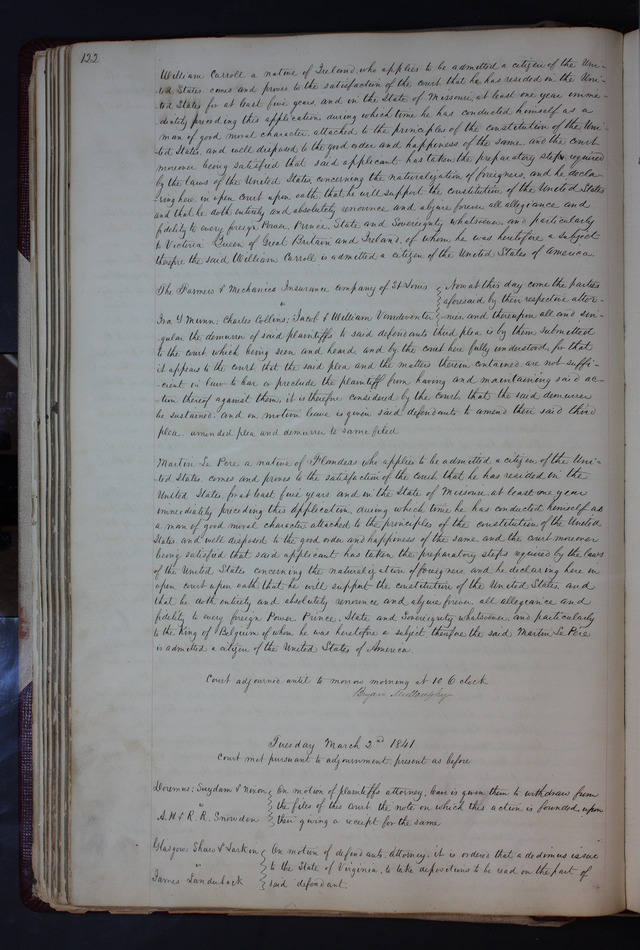 122
William Carroll a native of Ireland who applies to be admitted a citizen of the Uni-
ted States comes and proves to the satisfaction of the court that he has resided in the Uni-
ted States for at least five years, and in the State of Missouri, at least one year imme-
diately preceding this application, during which time he has conducted himself as a
man of good moral character, attached to the principles of the constitution of the Uni-
ted States, and well disposed to the good order and happiness of the same, and the court
moreover being satisfied that said applicant has taken the preparatory steps required
by the laws of the United States, concerning the naturalization of foreigners, and he decla-
ring here in open court upon oath, that he will support the constitution of the United States
and that he doth entirely and absolutely renounce and abjure forever all allegiance and
fidelity to every foreign Power, Prince, State and Sovereignty whatsoever, and particularly
to Victoria Queen of Great Britain and Ireland, of whom he was heretofore a subject
therefore the said William Carroll is admitted a citizen of the United States of America
The Farmers & Mechanics Insurance company of St Louis } Now at this day come the parties
" } aforesaid by their respective attor-
Ira Y Munn; Charles Collins; Jacob & William Vandeventer } nies and thereupon all and sin-
gular the demurrer of said plaintiffs to said defendants third plea is by them submitted
to the court, which being seen and heard and by the court here fully understood, for that
it appears to the court that the said plea and the matters therein contained are not suffi-
cient in law to bar or preclude the plaintiff from having and maintaining said ac-
tion thereof against them, it is therefore considered by the court that the said demurrer
be sustained. and on motion leave is given said defendants to amend their said third
plea amended plea and demurrer to same filed
Martin Le Pere a native of Flanders who applies to be admitted a citizen of the Uni-
ted States comes and proves to the satisfaction of the court that he has resided in the
United States for at least five years and in the State of Missouri at least one year
immediately preceding this application, during which time he has conducted himself as
a man of good moral character attached to the principles of the constitution of the United
States and well disposed to the good order and happiness of the same and the court moreover
being satisfied that said applicant has taken the preparatory steps required by the laws
of the United States concerning the naturalization of foreigners and he declaring here in
open court upon oath that he will support the constitution of the United States and
that he doth entirely and absolutely renounce and abjure forever all allegiance and
fidelity to every foreign Power Prince, State and Sovereignty whatsoever, and particularly
to the King of Belgium of whom he was heretofore a subject therefore the said Martin Le Pere
is admitted a citizen of the United States of America
Court adjourned until to morrow morning at 10 O clock
Bryan Mullanphy
Tuesday March 2nd 1841
Court met pursuant to adjournment, present as before
Doremus; Suydam & Nixon } On motion of plaintiffs attorney, leave is given them to withdraw from
" } the files of this court the note on which this action is founded, upon
A. H & R. R. Snowden } their giving a receipt for the same
Glasgow, Shaw & Larkin } On motion of defendants attorney, it is ordered that a dedimus issue
" } to the State of Virginia, to take depositions to be read on the part of
James Landerback } said defendant.